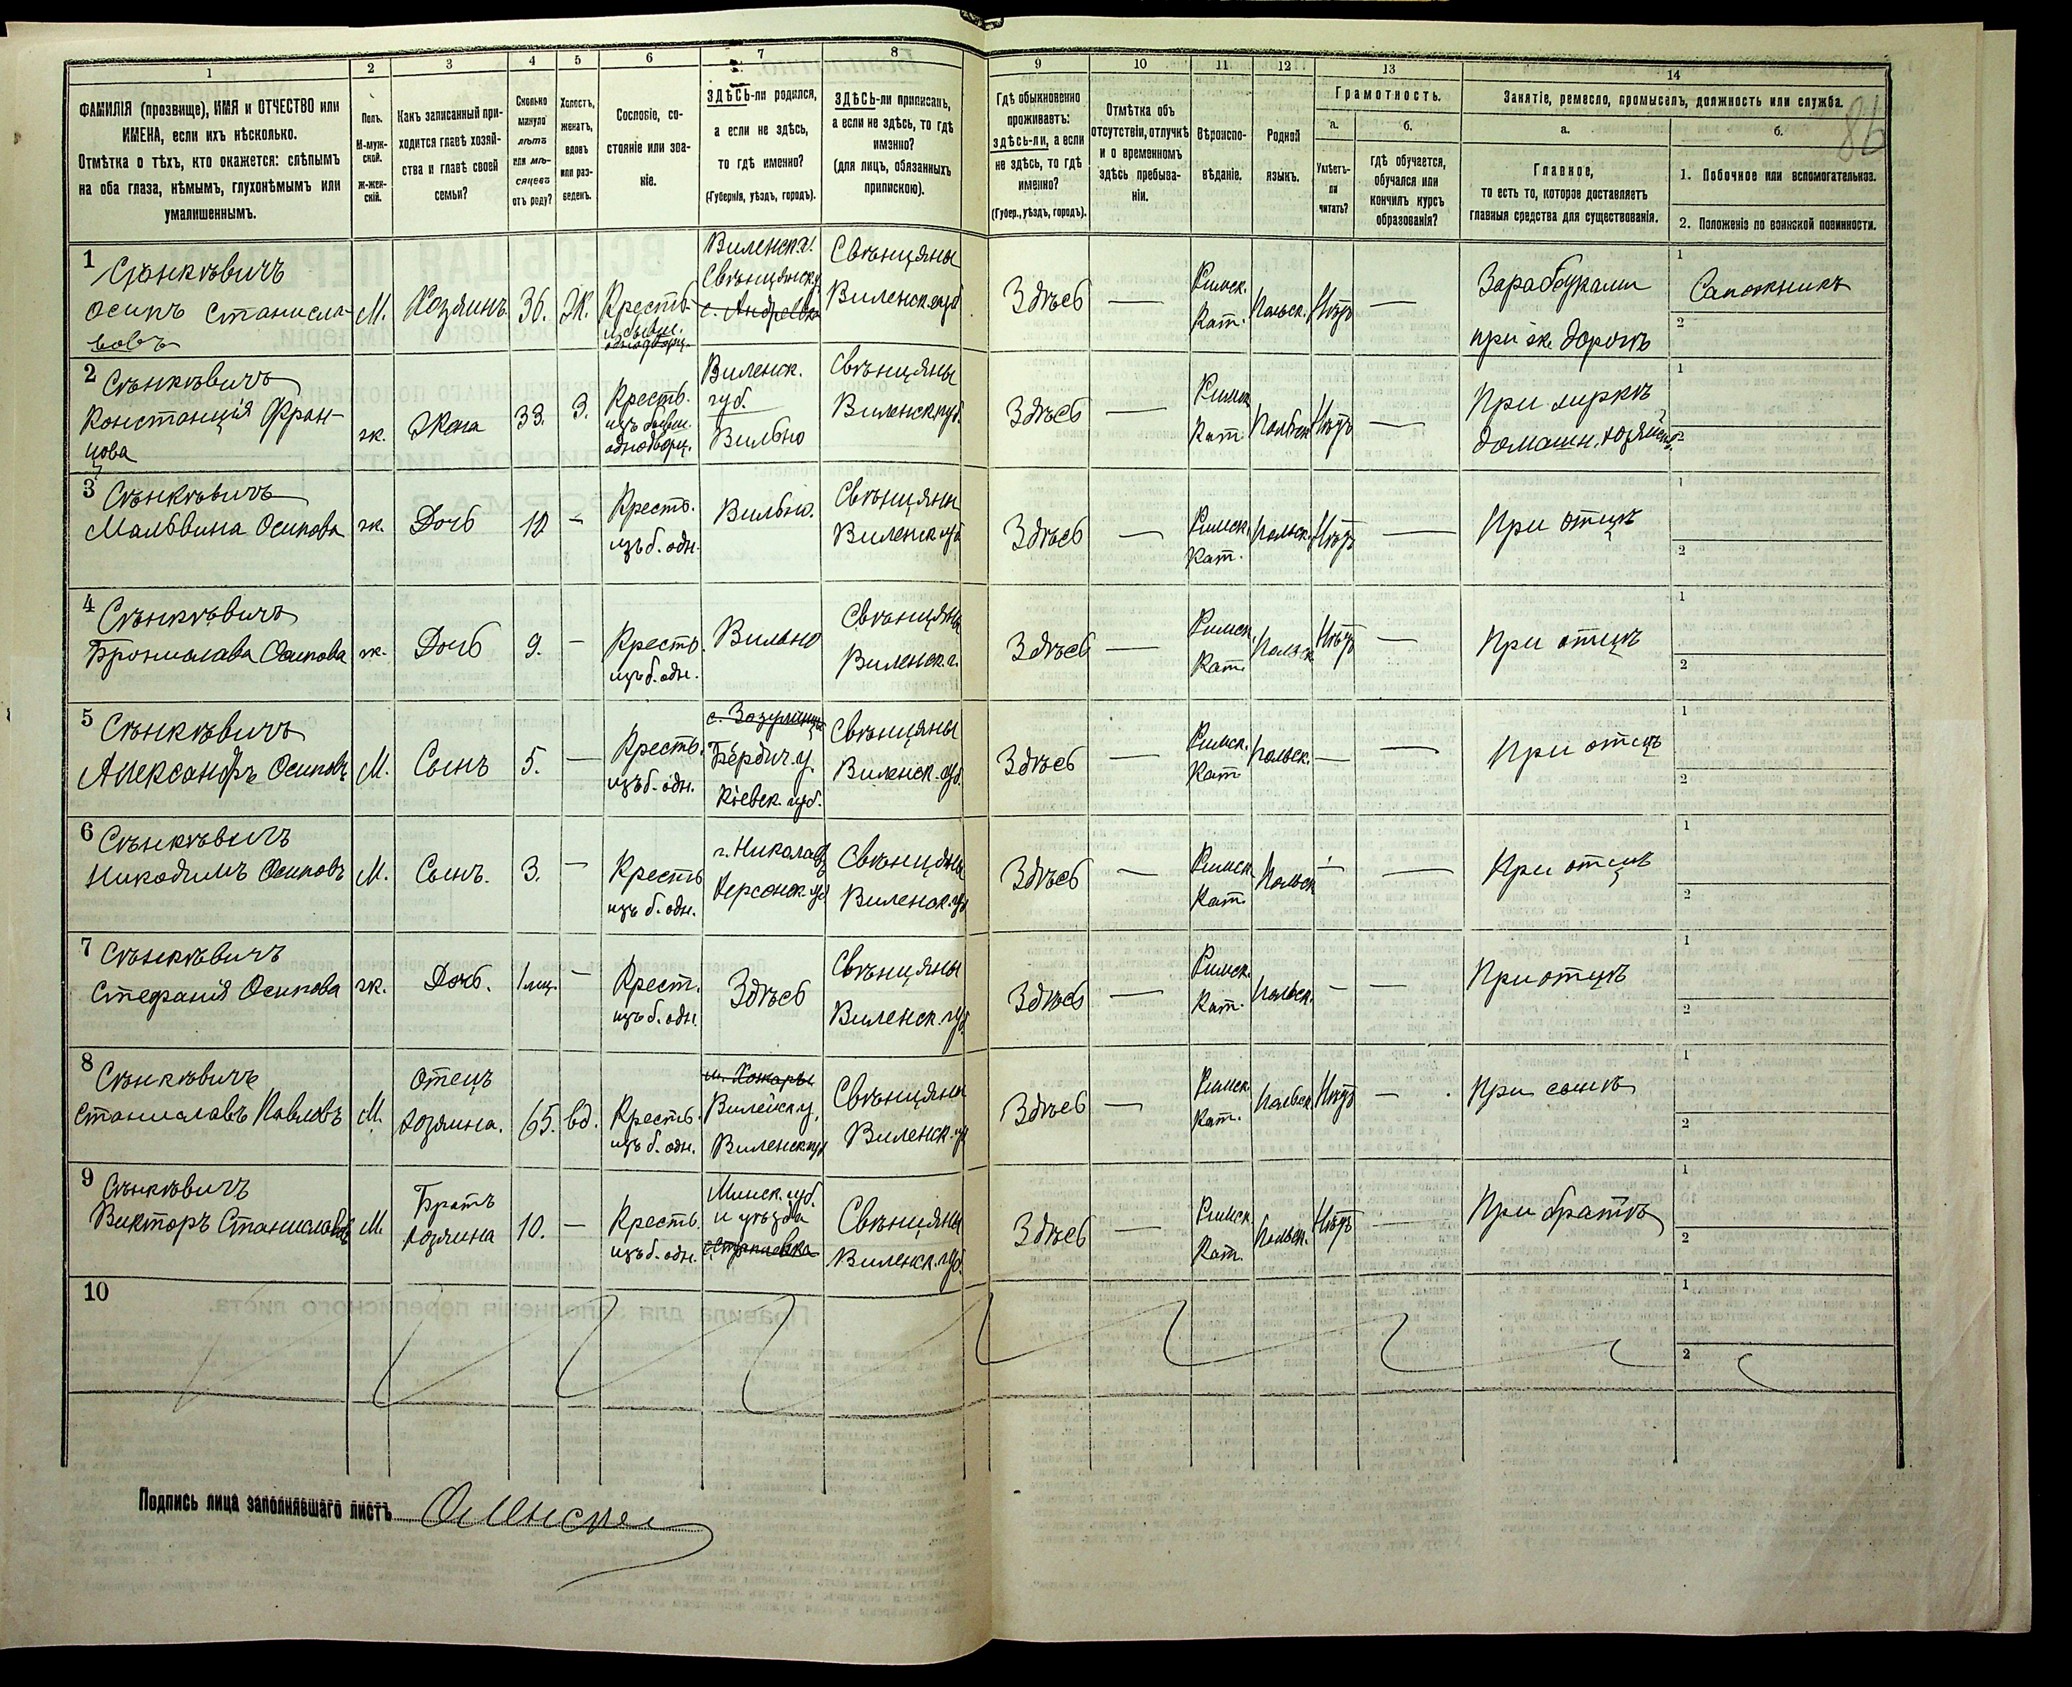 1
2
3
4
5
6
7
8
ФАМИЛІЯ (прозвище), ИМЯ и ОТЧЕСТВО или
ИМЕНА, если ихъ нѣсколько.
Отмѣтка о тѣхъ, кто окажется: слѣпымъ
на оба глаза, нѣмымъ, глухонѣмымъ или
умалишеннымъ.
Полъ.
М-муж-
ской.
Ж-жен-
скій.
Какъ записанный при-
ходится главѣ хозяй-
ства и главѣ своей
семьи?
Сколько
минуло
лѣтъ
или мѣ-
сяцевъ
отъ роду?
Холостъ,
женатъ,
вдовъ
или раз-
веденъ.
Сословіе, со-
стояніе или зва-
ніе.
ЗДѢСЬ-ли родился,
а если не здѣсь,
то гдѣ именно?
(Губернія, уѣздъ, городъ).
ЗДѢСЬ-ли приписанъ,
а если не здѣсь, то гдѣ
именно?
(для лицъ, обязанныхъ
припискою).
9
10
11
12
13
14
Гдѣ обыкновенно
проживаетъ:
здѣсь-ли, а если
не здѣсь, то гдѣ
именно?
(Губер., уѣздъ, городъ).
Отмѣтка объ
отсутствіи, отлучкѣ
и о временномъ
здѣсь пребыва-
ніи.
Вѣроиспо-
вѣданіе.
Родной
языкъ.
Грамотность.
а.
Умѣетъ-
ли
читать?
б.
гдѣ обучается,
обучался или
кончилъ курсъ
образованія?
Занятіе, ремесло, промыселъ, должность или служба.
а.
Главное,
то есть то, которое доставляетъ
главныя средства для существованія.
б.
1. Побочное или вспомогательное.
2. Положеніе по воинской повинности.
86
1
Сѣнкѣвичъ
Осипъ Станисла-
вовъ
М.
Хозяинъ
36.
Ж.
Крестьян.
изъ бывш.
однодворц.
Виленск.г.
Свѣнцянск.у
с. Андреевск
Свѣнцяны
Виленск.губ
Здѣсь
—
Римск.
Кат.
Польск.
Нѣтъ
—
Заработками
при ж. дорогѣ
1
Сапожникъ
2
2
Сѣнкѣвичъ
Констанція Фран-
цова
ж.
Жена
33.
З.
Крестьян.
изъ бывш.
однодворц.
Виленск.
губ.
Вильно
Свѣнцяны
Виленск.губ.
Здѣсь
—
Римск.
Кат.
Польск.
Нѣтъ
—
При мужѣ
домашн. хозяйств.
1
2
3
Сѣнкѣвичъ
Мальвина Осипова
ж.
Дочь
12
—
Кресть.
изъ б. одн.
Вильно.
Свѣнцяны
Виленск.губ
Здѣсь
—
Римск.
Кат.
Польск.
Нѣтъ
—
При отцѣ
1
2
4
Сѣнкѣвичъ
Брониславa Осипова
ж.
Дочь
9.
—
Кресть.
изъ б. одн.
Вильно
Свѣнцяны
Виленск.г.
Здѣсь
—
Римск.
Кат.
Польск.
Нѣтъ
—
При отцѣ
1
2
5
Сѣнкѣвичъ
Александръ Осиповъ
М.
Сынъ
5.
—
Кресть.
изъ б. одн.
с. Зозулинцы
Бердич.у.
Кіевск. губ.
Свѣнцяны
Виленск.губ.
Здѣсь
—
Римск.
Кат
Польск.
—
—
При отцѣ
1
2
6
Сѣнкѣвичъ
Никодимъ Осиповъ
М.
Сынъ.
3.
—
Кресть
изъ б. одн.
г. Николаевъ
Херсонск.губ
Свѣнцяны
Виленск.губ
Здѣсь
—
Римск.
Кат.
Польск
—
—
При отцѣ
1
2
7
Сѣнкѣвичъ
Стефанія Осипова
ж.
Дочь.
1 мц.
—
Крест.
изъ б. одн.
Здѣсь
Свѣнцяны
Виленск.губ
Здѣсь
—
Римск.
Кат.
Польск.
—
—
При отцѣ
1
2
8
Сѣнкѣвичъ
Станиславъ Павловъ
М.
Отецъ
хозяина.
65.
вд.
Кресть.
изъ б. одн.
Вилейск.у.
Виленск.губ
Свѣнцяны
Виленск.губ
Здѣсь
—
Римск.
Кат.
Польск.
Нѣтъ
—
При сынѣ
1
2
9
Сѣнкѣвичъ
Викторъ Станиславовъ
М.
Братъ
хозяина
10.
—
Кресть.
изъ б. одн.
Минск. губ.
и уѣзда
Свѣнцяны
Виленск.губ.
Здѣсь
—
Римск.
Кат.
Польск.
Нѣтъ
—
При братѣ
1
2
10
1
2
Подпись лица заполнявшаго листъ